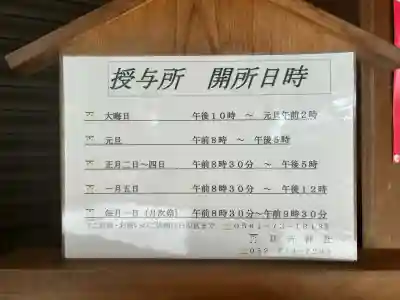 授与所　開所日時
大晦日　午後10時　～　元旦午前2時
元旦　午前8時　～　午後5時
正月二日～四日　午前8時30分　～　午後5時
一月五日　午前8時30分　～　午後12時
毎月一日（月次祭）　午前8時30分～午前9時30分